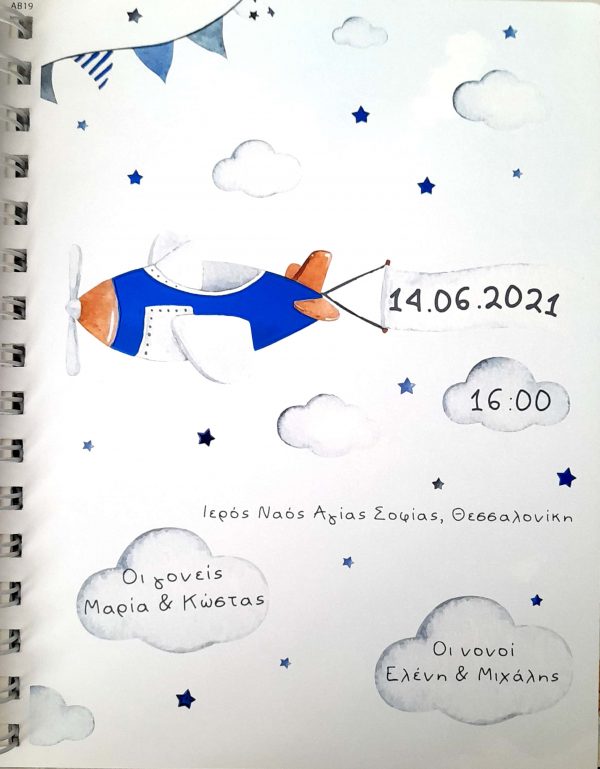 AB19
14.06.2021
16:00
Ιερός Ναός Αγίας Σοφίας, Θεσσαλονίκη
Οι γονείς
Μαρία & Κώστας
Οι νονοί
Ελένη & Μιχάλης